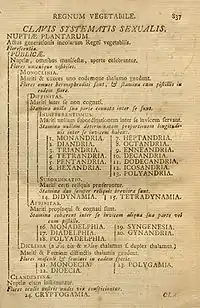 REGNUM VEGETABILE. 837
CLAVIS SYSTEMATIS SEXUALIS.
NUPTIÆ PLANTARUM.
Actus generationis incolarum Regni vegetabilis.
Florescentia.
PUBLICÆ.
Nuptiæ, omnibus manifestæ, aperte celebrantur.
Flores unicuique visibiles.
MONOCLINIA.
Mariti & uxores uno eodemque thalamo gaudent.
Flores omnes hermaphroditi sunt, & stamina cum pistillis in
eodem flore.
DIFFINITAS.
Mariti inter se non cognati.
Stamina nulla sua parte connata inter se sunt.
INDIFFERENTISMUS.
Mariti nullam subordinationem inter se invicem servant.
Stamina nullam determinatam proportionem longitudi-
nis inter se invicem habent.
1. MONANDRIA. 7. HEPTANDRIA.
2. DIANDRIA. 8. OCTANDRIA.
3. TRIANDRIA. 9. ENNEANDRIA.
4. TETRANDRIA. 10. DECANDRIA.
5. PENTANDRIA. 11. DODECANDRIA.
6. HEXANDRIA. 12. ICOSANDRIA.
13. POLYANDRIA.
SUBORDINATIO.
Mariti certi reliquis præferuntur.
Stamina duo semper reliquis breviora sunt.
14. DIDYNAMIA. 15. TETRADYNAMIA.
AFFINITAS.
Mariti propinqui & cognati sunt.
Stamina cohærent inter se invicem aliqua sua parte vel
cum pistillo.
16. MONADELPHIA. 19. SYNGENESIA.
17. DIADELPHIA. 20. GYNANDRIA.
18. POLYADELPHIA.
DICLINIA (a δις bis & κλινη thalamus s. duplex thalamus.)
Mariti & Feminæ distinctis thalamis gaudent.
Flores masculi & feminei in eadem specie.
21. MONOECIA. 23. POLYGAMIA.
22. DIOECIA.
CLANDESTINÆ.
Nuptiæ clam instituuntur.
Flores oculis nostris nudis vix conspiciuntur.
24. CRYPTOGAMIA.
CLA-